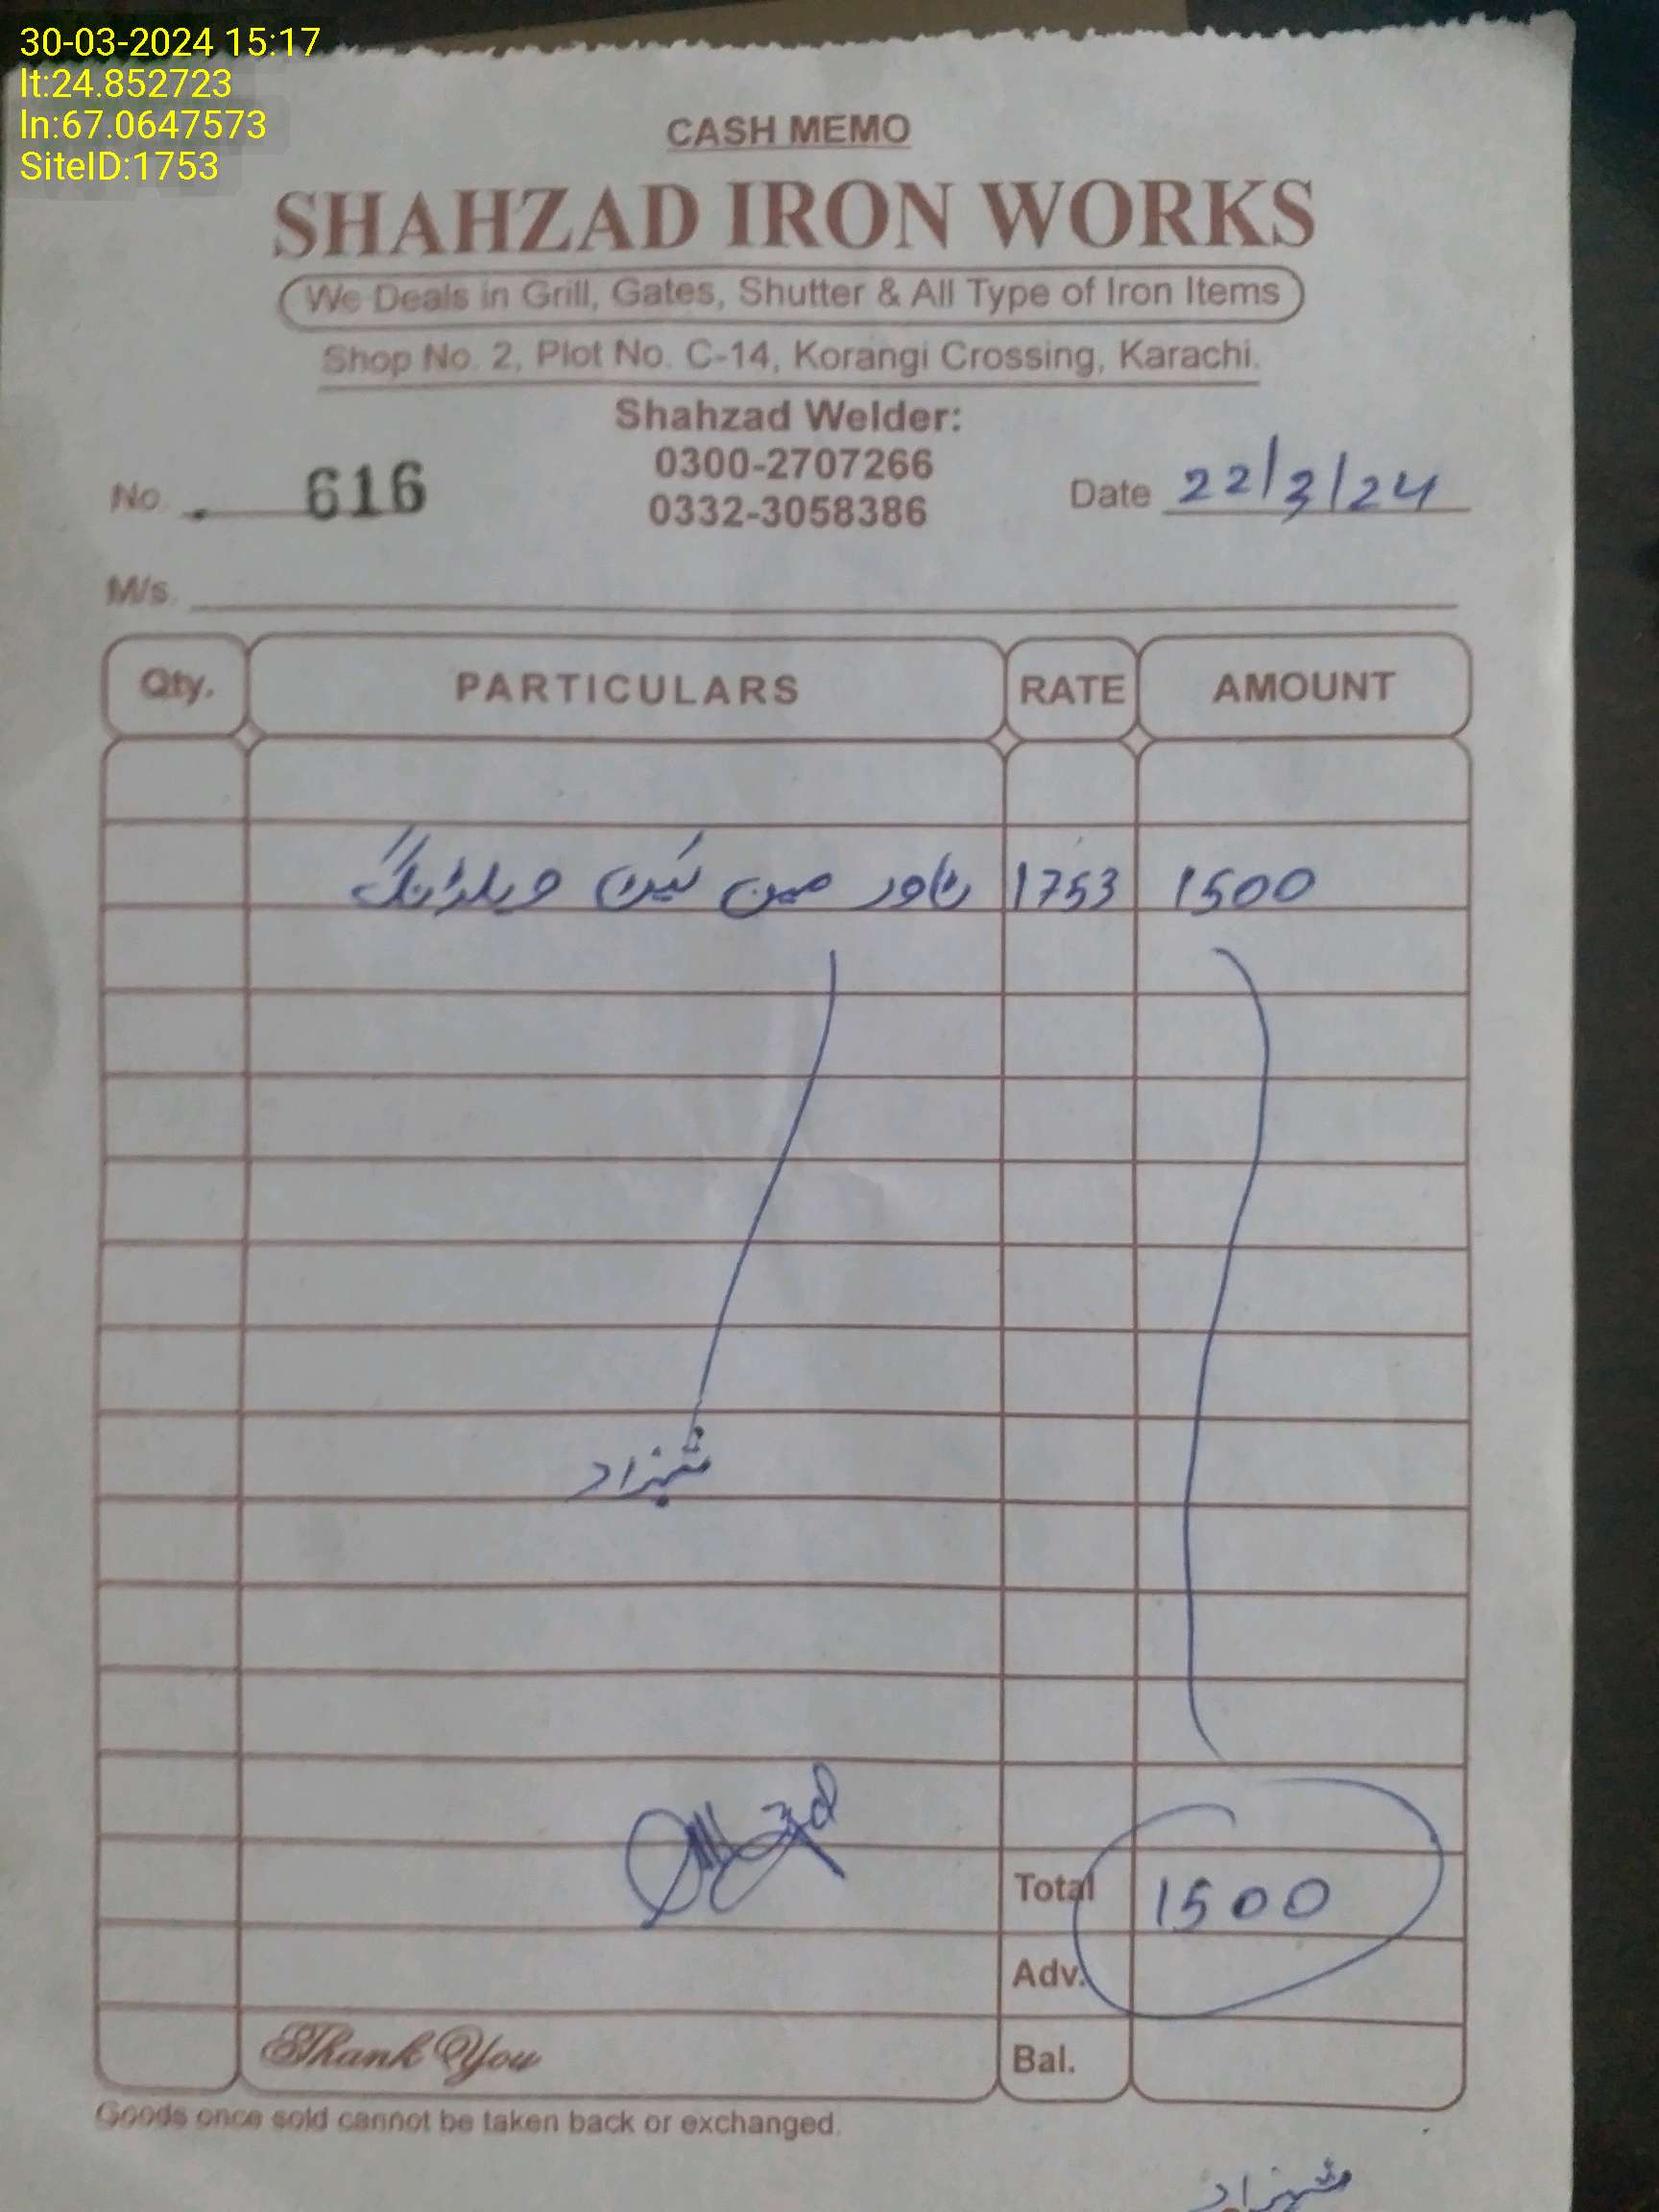 30-03-2024 15:17
lt:24.852723
ln:67.0647573
SiteID:1753
CASH MEMO
SHAHZAD IRON WORKS
We Deals in Grill, Gates, Shutter & All Type of Iron Items
Shop No. 2, Plot No. C-14, Korangi Crossing, Karachi.
Shahzad Welder:
0300-2707266
0332-3058386
No. 616
Date 22/3/24
M/s.
Qty. PARTICULARS RATE AMOUNT
ٹاور مین گیٹ ویلڈنگ 1753 1500
شہزاد
Total 1500
Adv.
Thank You Bal.
Goods once sold cannot be taken back or exchanged.
شہزاد